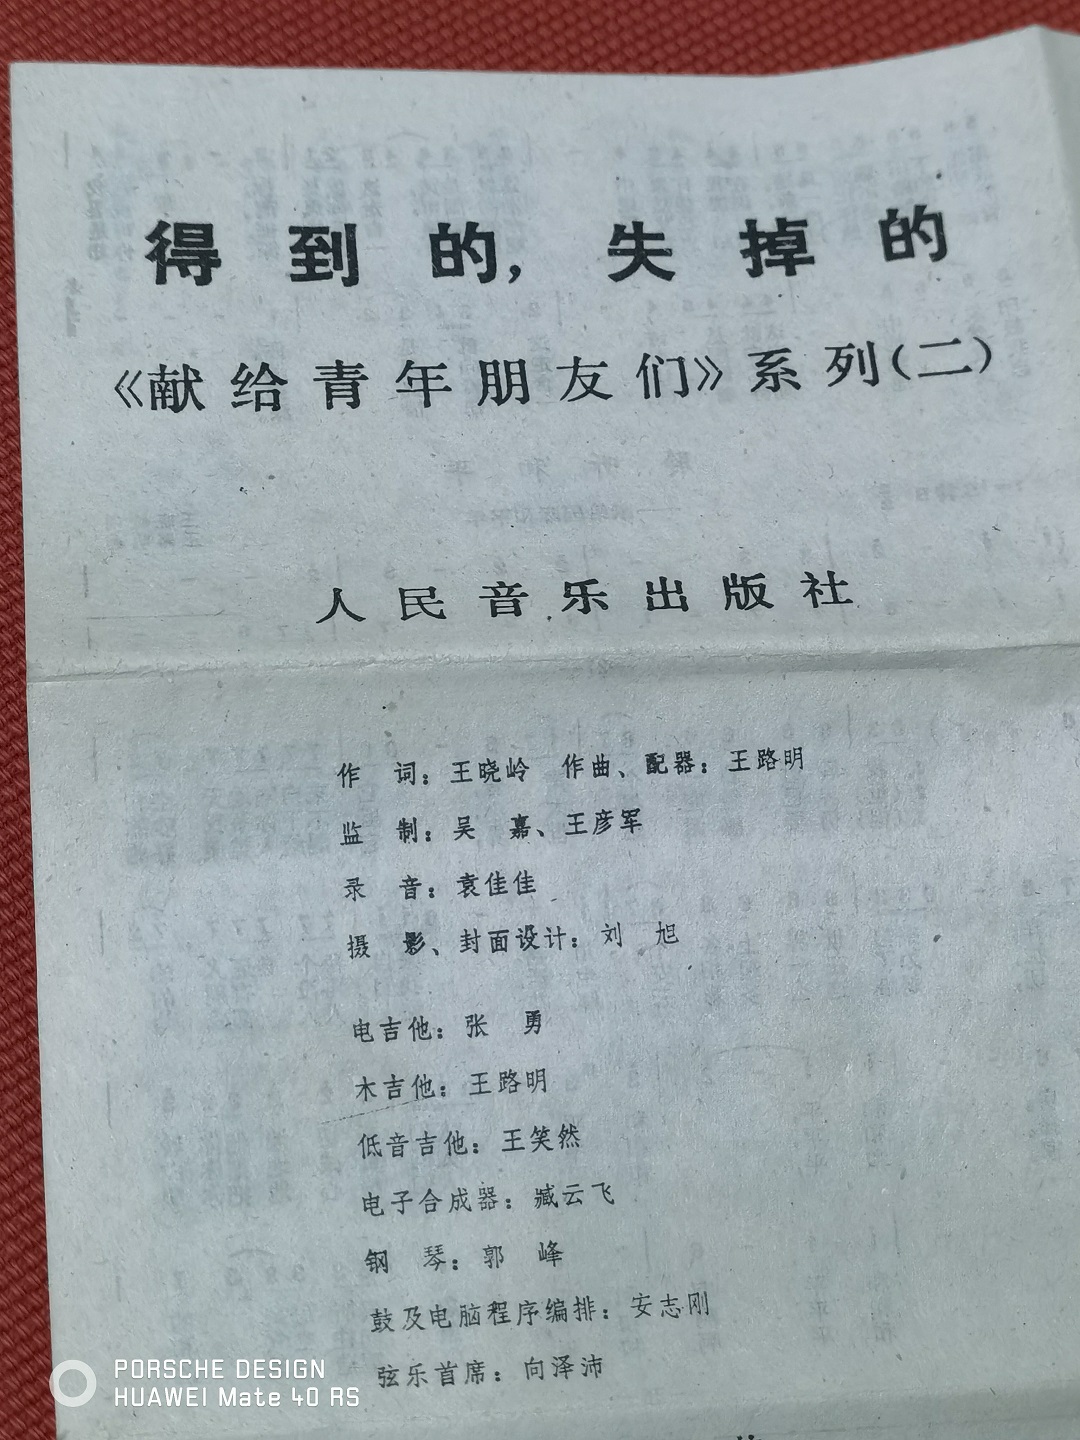 得到的，失掉的
《献给青年朋友们》系列（二）
人民音乐出版社
作　词：王晓岭　作曲、配器：王路明
监　制：吴　嘉、王彦军
录　音：袁佳佳
摄　影、封面设计：刘　旭
电吉他：张　勇
木吉他：王路明
低音吉他：王笑然
电子合成器：臧云飞
钢　琴：郭　峰
鼓及电脑程序编排：安志刚
弦乐首席：向泽沛
PORSCHE DESIGN
HUAWEI Mate 40 RS